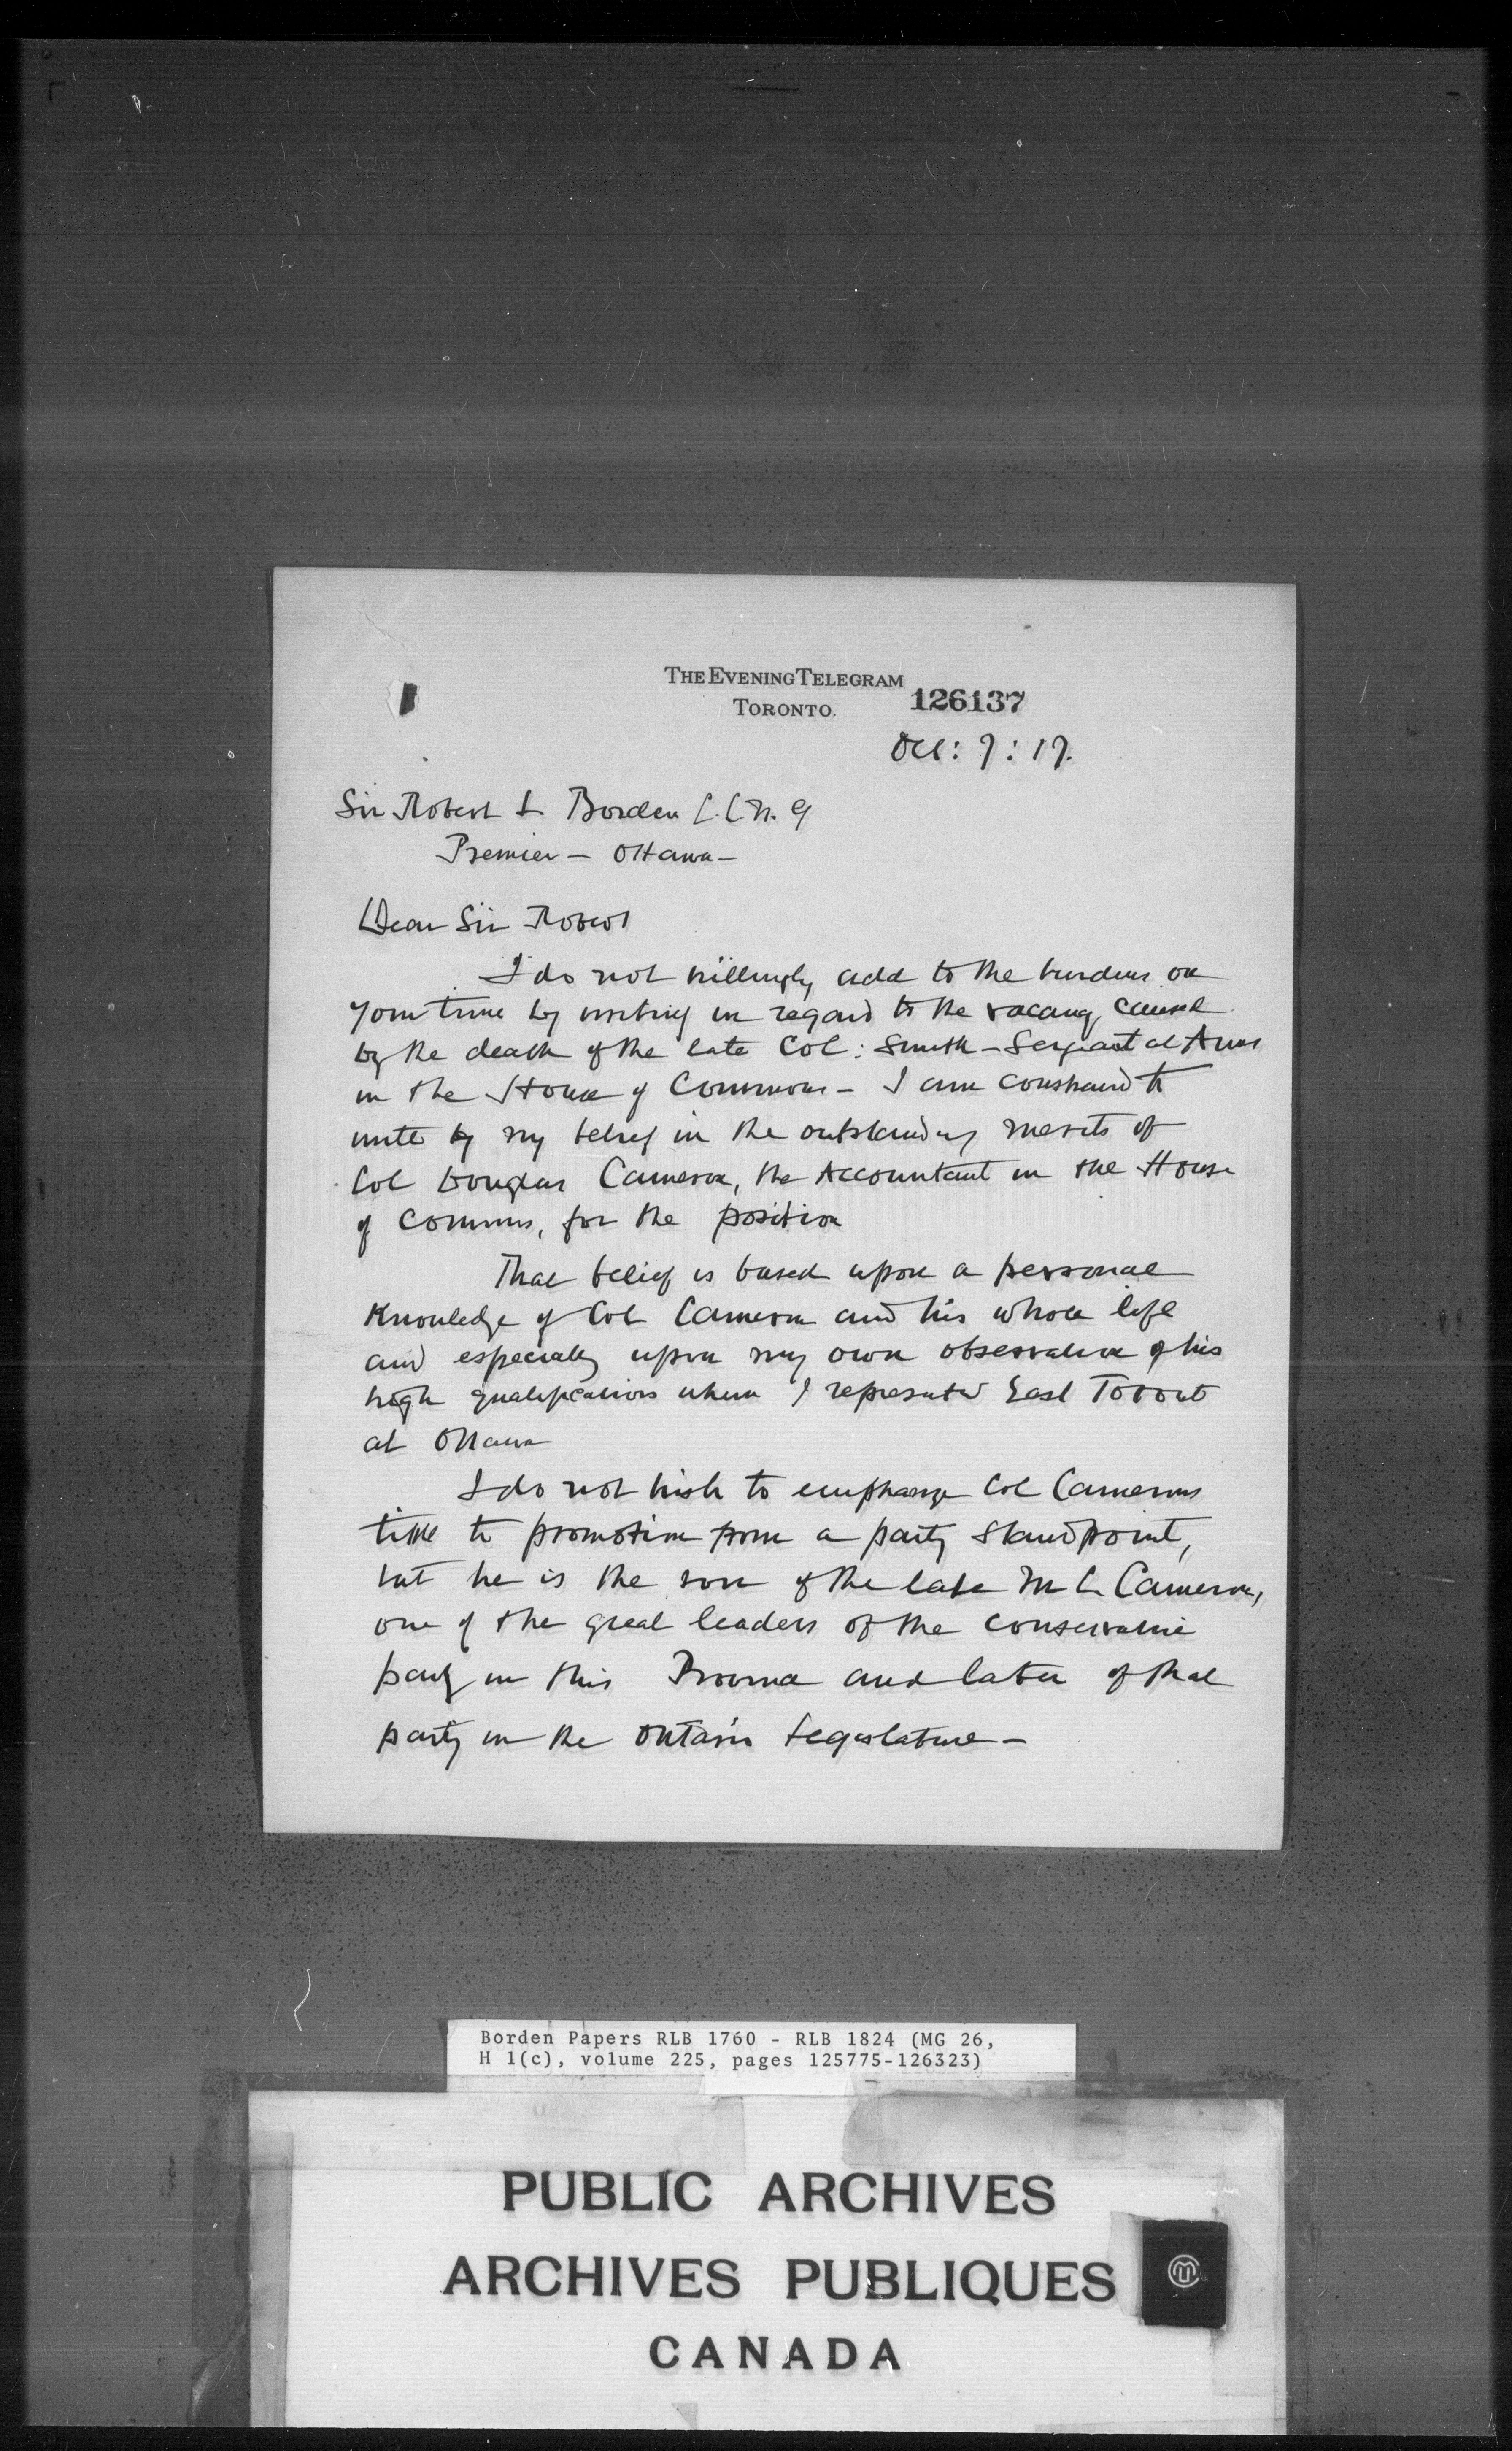 THE EVENING TELEGRAM
TORONTO.
126137
Oct: 7: 17.
Sir Robert L Borden
Premier — Ottawa —
Dear Sir Robert
I do not willingly add to the burdens on
your time by writing in regard to the vacancy caused
by the death of the late Col: Smith — Sergeant at Arms
in the House of Commons — I am constrained to
write by my belief in the outstanding merits of
Col Douglas Cameron, the Accountant in the House
of Commons, for the position
That belief is based upon a personal
Knowledge of Col Cameron and his whole life
and especially upon my own observation of his
high qualifications when I represented East Toronto
at Ottawa
I do not wish to emphasize Col Camerons
title to promotion from a party standpoint,
but he is the son of the late M C Cameron,
one of the great leaders of the conservative
party in this Province and later of that
party in the Ontario Legislature —
Borden Papers RLB 1760 - RLB 1824 (MG 26,
H 1(c), volume 225, pages 125775-126323)
PUBLIC ARCHIVES
ARCHIVES PUBLIQUES
CANADA